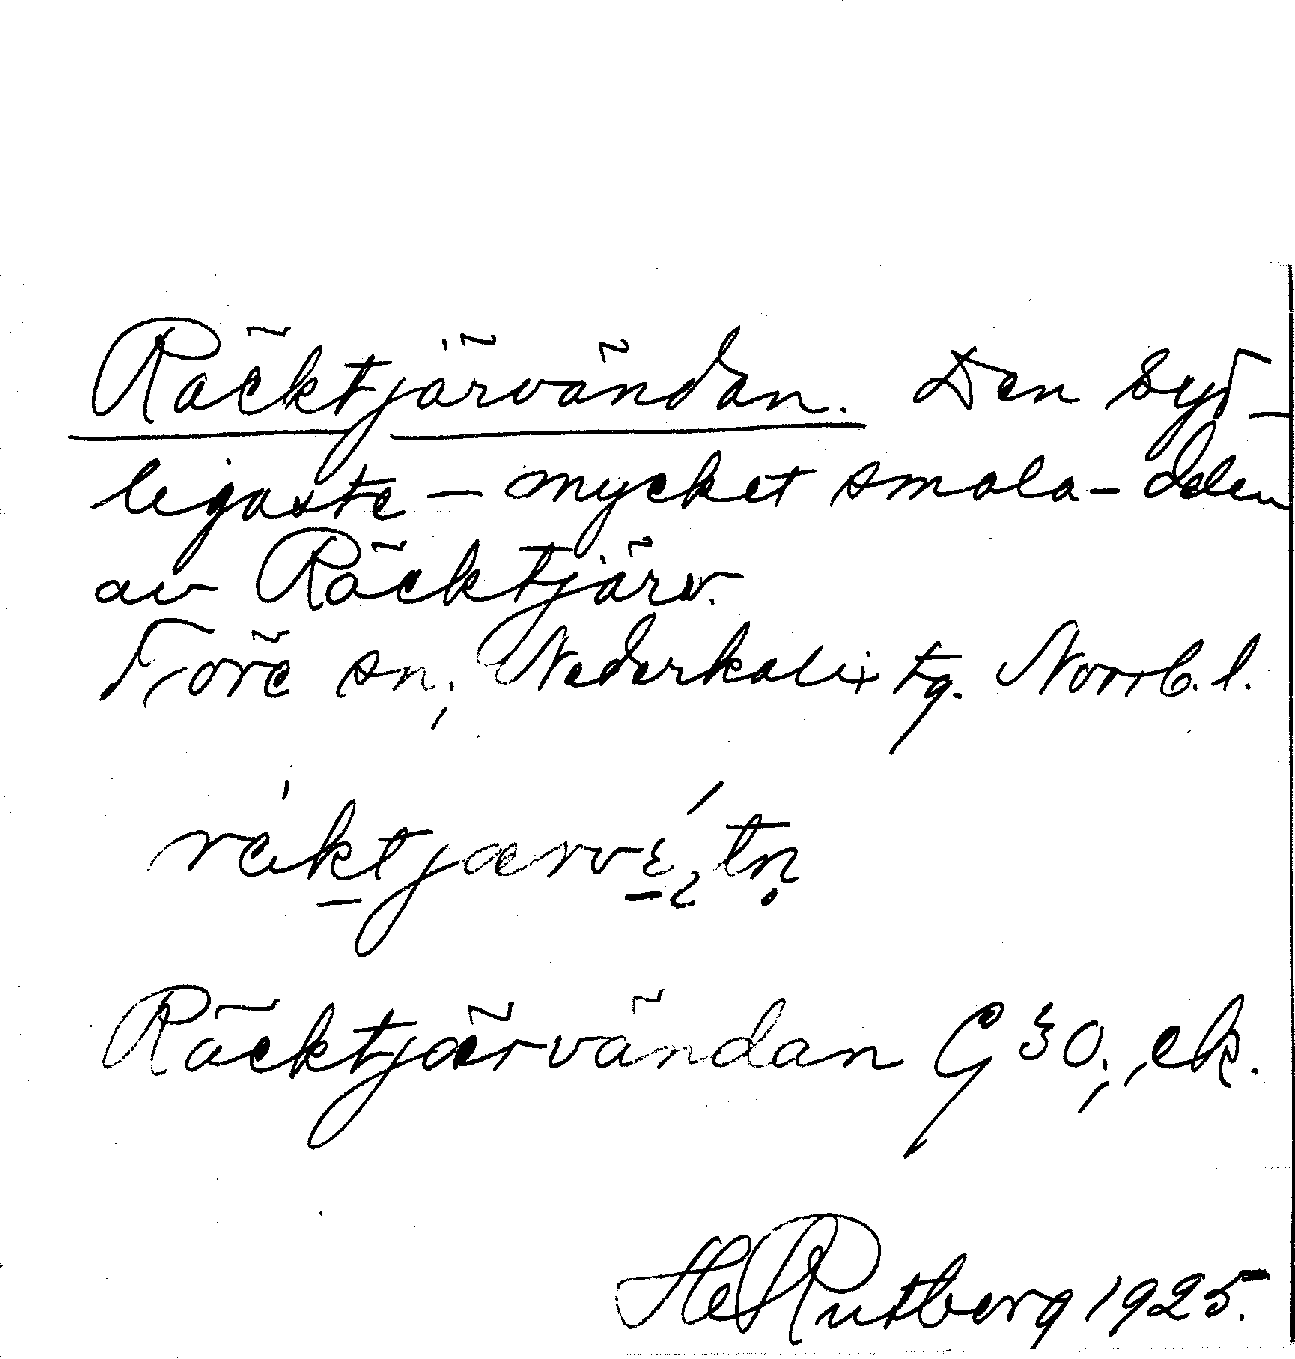 Räcktjärvändan. Den syd-
ligaste – mycket smala – delen
av Räcktjärv.
Töre sn, Nederkalix tg. Norrb. l.
Räcktjärvändan G 30, ek.
He Rutberg 1925.